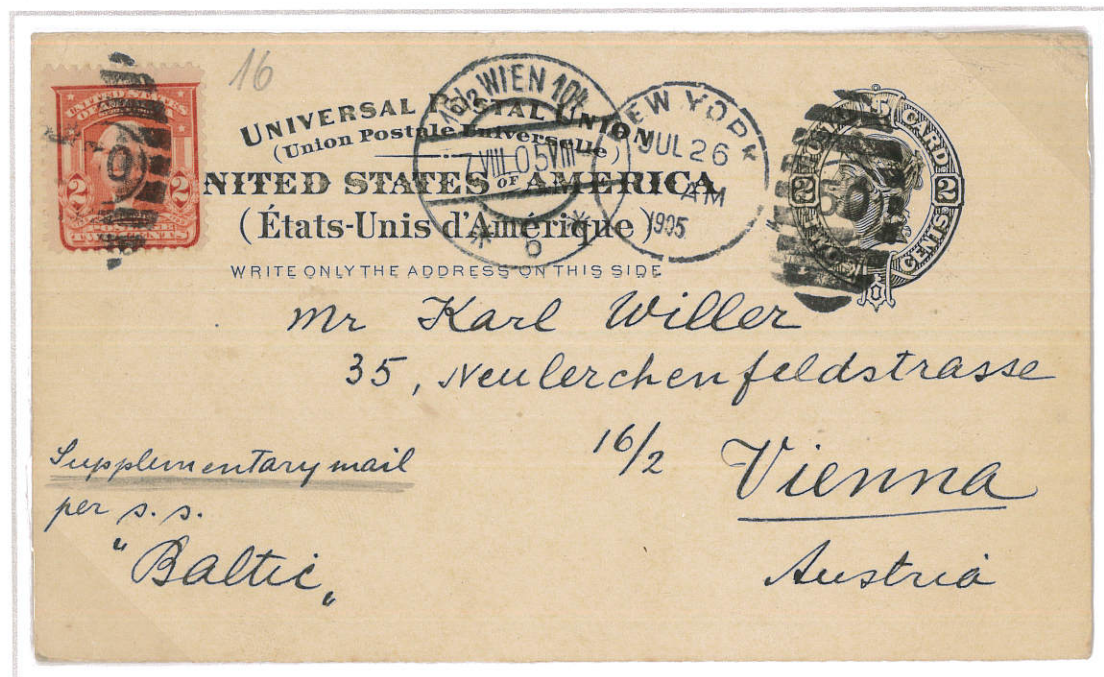 16
UNITED STATES
OF AMERICA
2 2
POSTAGE
TWO CENTS
UNIVERSAL POSTAL UNION
(Union Postale Universelle)
UNITED STATES OF AMERICA
(États-Unis d'Amérique)
WRITE ONLY THE ADDRESS ON THIS SIDE
16/2 WIEN 104
VIII 05 VIII
* b *
NEW YORK
JUL 26
AM
1905
CARD
2 2
Mr Karl Willer
35, Neulerchenfeldstrasse
16/2 Vienna
Austria
Supplementary mail
per s.s.
"Baltic"